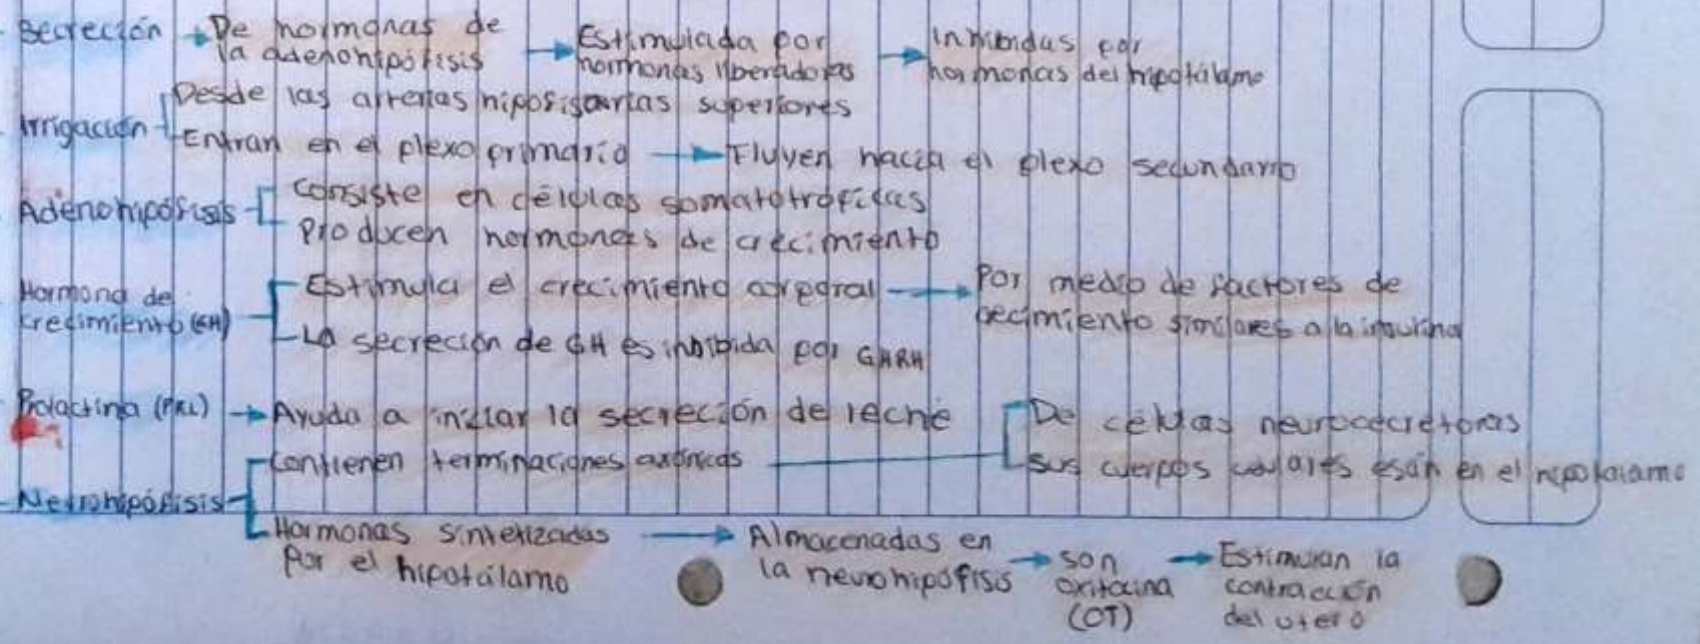 Secreción → De hormonas de
la adenohipófisis → Estimulada por
hormonas liberadoras → Inhibidas por
hormonas del hipotálamo
Irrigación
Desde las arterias hipofisarias superiores
Entran en el plexo primario → Fluyen hacia el plexo secundario
Adenohipófisis
Consiste en células somatotróficas
Producen hormonas de crecimiento
Hormona de
crecimiento (GH)
Estimula el crecimiento corporal → Por medio de factores de
crecimiento similares a la insulina
La secreción de GH es inhibida por GHRH
Prolactina (PRL) → Ayuda a iniciar la secreción de leche
Neurohipófisis
Contienen terminaciones axónicas
De células neurosecretoras
sus cuerpos celulares están en el hipotálamo
Hormonas sintetizadas
por el hipotálamo → Almacenadas en
la neurohipófisis → son
oxitocina
(OT) → Estimulan la
contracción
del utero